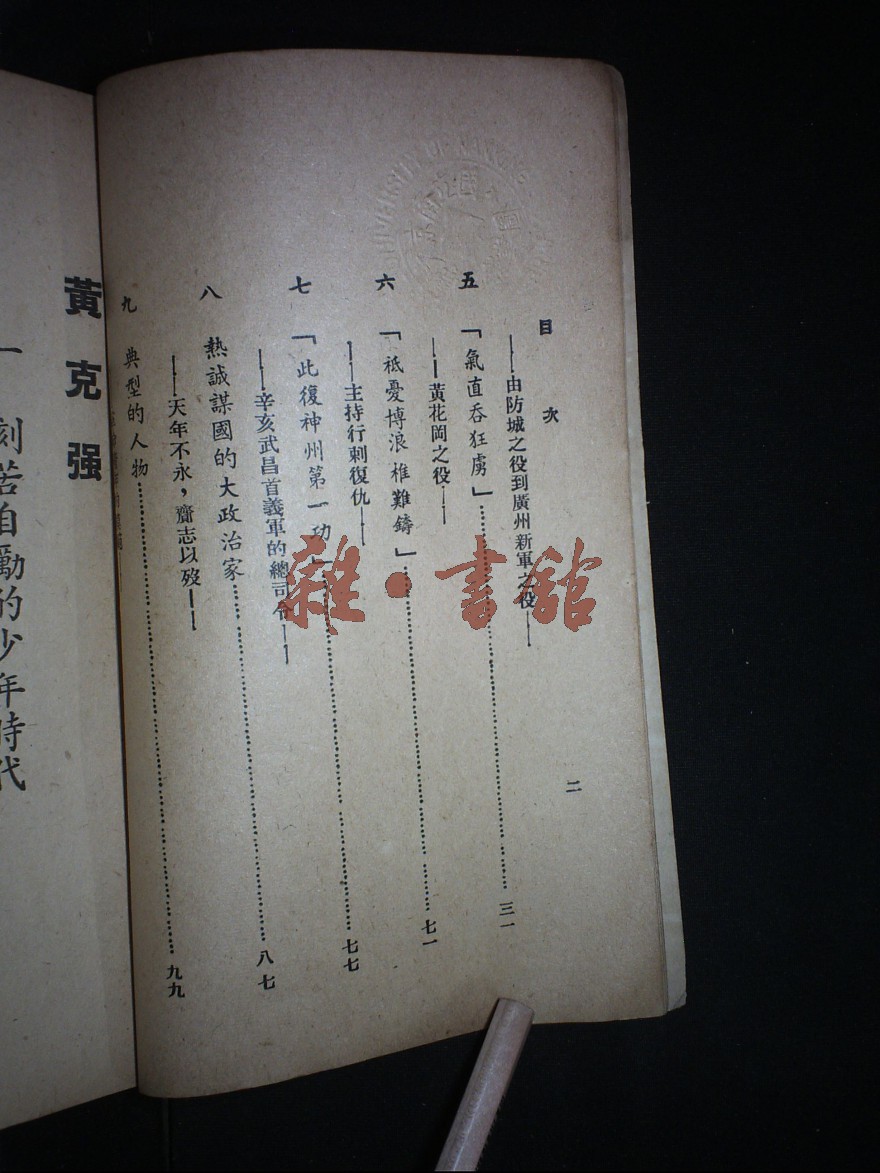 目次
二
——由防城之役到廣州新軍之役——
五 「氣直吞狂虜」……三一
——黃花岡之役——
六 「祗憂博浪椎難鑄」……七一
——主持行刺復仇——
七 「此復神州第一功」……七七
——辛亥武昌首義軍的總司令——
八 熱誠謀國的大政治家……八七
——天年不永，齎志以歿——
九 典型的人物……九九
黃克强
一 刻苦自勵的少年時代
雜·書館
UNIVERSITY OF NANKING